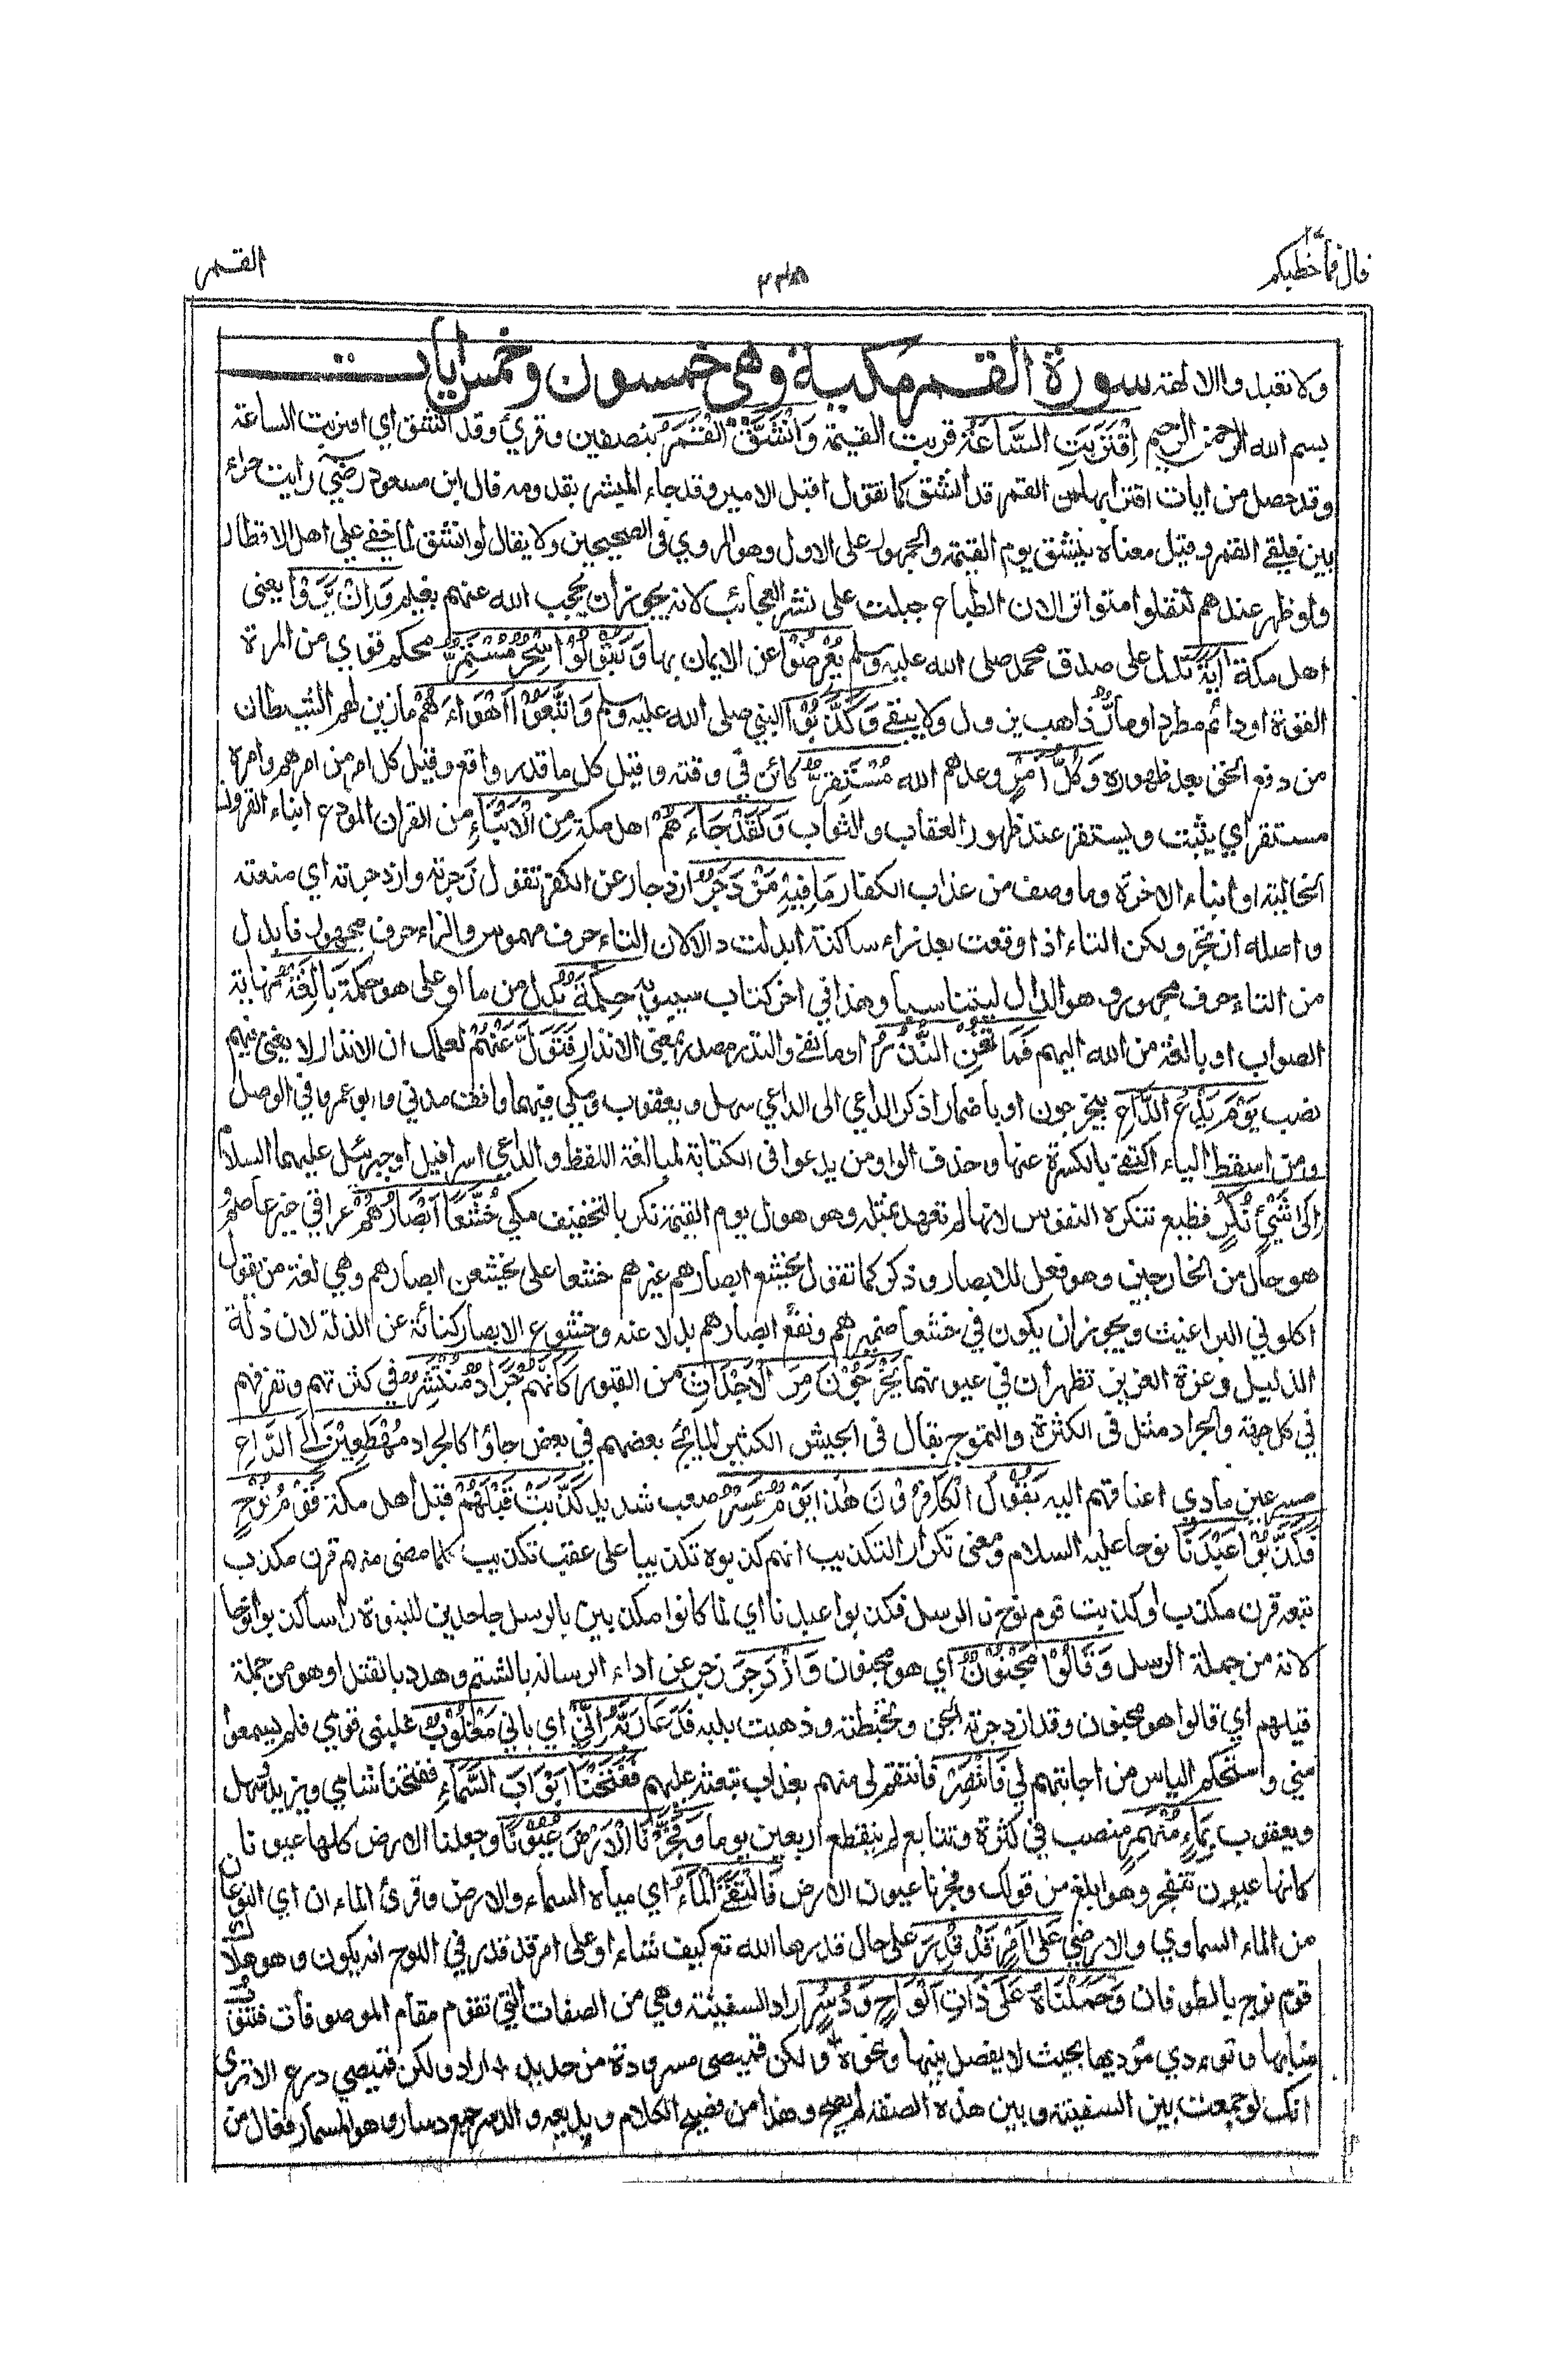 قال فمأخطبكم
٣٣٨
القمر
ولا تعبدوا الالهة سورة القمر مكية وهي خمسون وخمس ايات
بسم الله الرحمن الرحيم اِقْتَرَبَتِ السَّاعَةُ قربت القيمة وَانْشَقَّ الْقَمَرُ بنصفين وقرئ وقد انشق اي اقتربت الساعة
وقد حصل من ايات اقترابها ان القمر قد انشق كما تقول اقبل الامير وقد جاء المبشر بقدومه قال ابن مسعود رضي رايت حراء
بين فلقتي القمر وقيل معناه ينشق يوم القيمة والجمهور على الاول وهو المروي في الصحيحين ولا يقال لو انشق لما خفي على اهل الاقطار
ولو ظهر عندهم لنقلوا متواترا لان الطباع جبلت على نشر العجائب لانه يجوز ان يحجب الله عنهم بغيم وَاِنْ يَّرَوْا يعني
اهل مكة اٰيَةً تدل على صدق محمد صلى الله عليه وسلم يُعْرِضُوْا عن الايمان بها وَيَقُوْلُوْا سِحْرٌ مُّسْتَمِرٌّ محكم قوي من المرة
القوة او دائم مطرد او مارّ ذاهب يزول ولا يبقى وَكَذَّبُوْا النبي صلى الله عليه وسلم وَاتَّبَعُوْا اَهْوَاءَهُمْ ما زين لهم الشيطان
من دفع الحق بعد ظهوره وَكُلُّ اَمْرٍ وعدهم الله مُّسْتَقِرٌّ كائن في وقته وقيل كل ما قدر واقع وقيل كل امر من امرهم وامره
مستقر اي يثبت ويستقر عند ظهور العقاب والثواب وَلَقَدْ جَاءَهُمْ اهل مكة مِنَ الْاَنْبَاءِ من القران المودع انباء القرون
الخالية او انباء الاخرة وما وصف من عذاب الكفار مَا فِيْهِ مُزْدَجَرٌ ازدجار عن الكفر تقول زجرته وازدجرته اي منعته
واصله ازتجر ولكن التاء اذا وقعت بعد زاء ساكنة ابدلت دالا لان التاء حرف مهموس والزاء حرف مجهور فابدل
من التاء حرف مجهور وهو الدال ليتناسبا وهذا في اخر كتاب سيبويه حِكْمَةٌ بدل من ما او على هو حكمة بَالِغَةٌ نهاية
الصواب او بالغة من الله اليهم فَمَا تُغْنِ النُّذُرُ او ما نفي والنذر مصدر بمعنى الانذار فَتَوَلَّ عَنْهُمْ لعلمك ان الانذار لا يغني فيهم
نصب يَوْمَ يَدْعُ الدَّاعِ بيخرجون او باضمار اذكر الداعي الى الداعي سهل ويعقوب ومكي فيهما وافقه مدني وابو عمرو في الوصل
ومن اسقط الياء اكتفى بالكسرة عنها وحذف الواو من يدعوا في الكتابة لمبالغة اللفظ والداعي اسرافيل او جبرئيل عليهما السلام
اِلٰى شَيْئٍ نُّكُرٍ فظيع تنكره النفوس لانها لم تعهد بمثله وهو هول يوم القيمة نكر بالتخفيف مكي خُشَّعًا اَبْصَارُهُمْ عراقي غير عاصم
هو حال من الخارجين وهو فعل للابصار وذكر كما تقول يخشع ابصارهم غيرهم خشعا على يخشعن ابصارهم وهي لغة من يقول
اكلوني البراغيث ويجوز ان يكون في خشعا ضميرهم وتقع ابصارهم بدلا عنه وخشوع الابصار كناية عن الذلة لان ذلة
الذليل وعزة العزيز تظهران في عيونهما يَخْرُجُوْنَ مِنَ الْاَجْدَاثِ من القبور كَاَنَّهُمْ جَرَادٌ مُّنْتَشِرٌ في كثرتهم وتفرقهم
في كل جهة والجراد مثل في الكثرة والتموج يقال في الجيش الكثير المائج بعضهم في بعض جاؤا كالجراد مُهْطِعِيْنَ اِلَى الدَّاعِ
مسرعين مادي اعناقهم اليه يَقُوْلُ الْكَافِرُوْنَ هٰذَا يَوْمٌ عَسِرٌ صعب شديد كَذَّبَتْ قَبْلَهُمْ قبل اهل مكة قَوْمُ نُوْحٍ
فَكَذَّبُوْا عَبْدَنَا نوحا عليه السلام ومعنى تكرار التكذيب انهم كذبوه تكذيبا على عقب تكذيب كلما مضى منهم قرن مكذب
تبعه قرن مكذب او كذبت قوم نوح ن الرسل فكذبوا عبدنا اي لما كانوا مكذبين بالرسل جاحدين للنبوة راسا كذبوا نوحا
لانه من جملة الرسل وَقَالُوْا مَجْنُوْنٌ اي هو مجنون وَّازْدُجِرَ زجر عن اداء الرسالة بالشتم وهدد بالقتل او هو من جملة
قيلهم اي قالوا هو مجنون وقد ازدجرته الجن وتخبطته وذهبت بلبه فَدَعَا رَبَّهٗ اَنِّيْ اي باني مَغْلُوْبٌ غلبني قومي فلم يسمعوا
مني واستحكم الياس من اجابتهم لي فَانْتَصِرْ فانتقم لي منهم بعذاب تبعثه عليهم فَفَتَحْنَا اَبْوَابَ السَّمَاءِ ففتحنا شامي ويزيد وسهل
ويعقوب بِمَاءٍ مُّنْهَمِرٍ منصب في كثرة وتتابع لم ينقطع اربعين يوما وَّفَجَّرْنَا الْاَرْضَ عُيُوْنًا وجعلنا الارض كلها عيونا
كانها عيون تتفجر وهو ابلغ من قولك وفجرنا عيون الارض فَالْتَقَى الْمَاءُ اي مياه السماء والارض وقرئ الماءان اي النوعان
من الماء السماوي والارضي عَلٰى اَمْرٍ قَدْ قُدِرَ على حال قدرها الله تع كيف شاء او على امر قد قدر في اللوح انه يكون وهو هلاك
قوم نوح بالطوفان وَحَمَلْنَاهُ عَلٰى ذَاتِ اَلْوَاحٍ وَّدُسُرٍ اراد السفينة وهي من الصفات التي تقوم مقام الموصوفات فتنوب
منابها وتودي مؤديها بحيث لا يفصل بينها ونحوه ولكن قميصي مسرودة من حديد + اراد ولكن قميصي درع الا ترى
انك لو جمعت بين السفينة وبين هذه الصفة لم يصح وهذا من فصيح الكلام وبديعه والدسر جمع دسار وهو المسمار فعال من